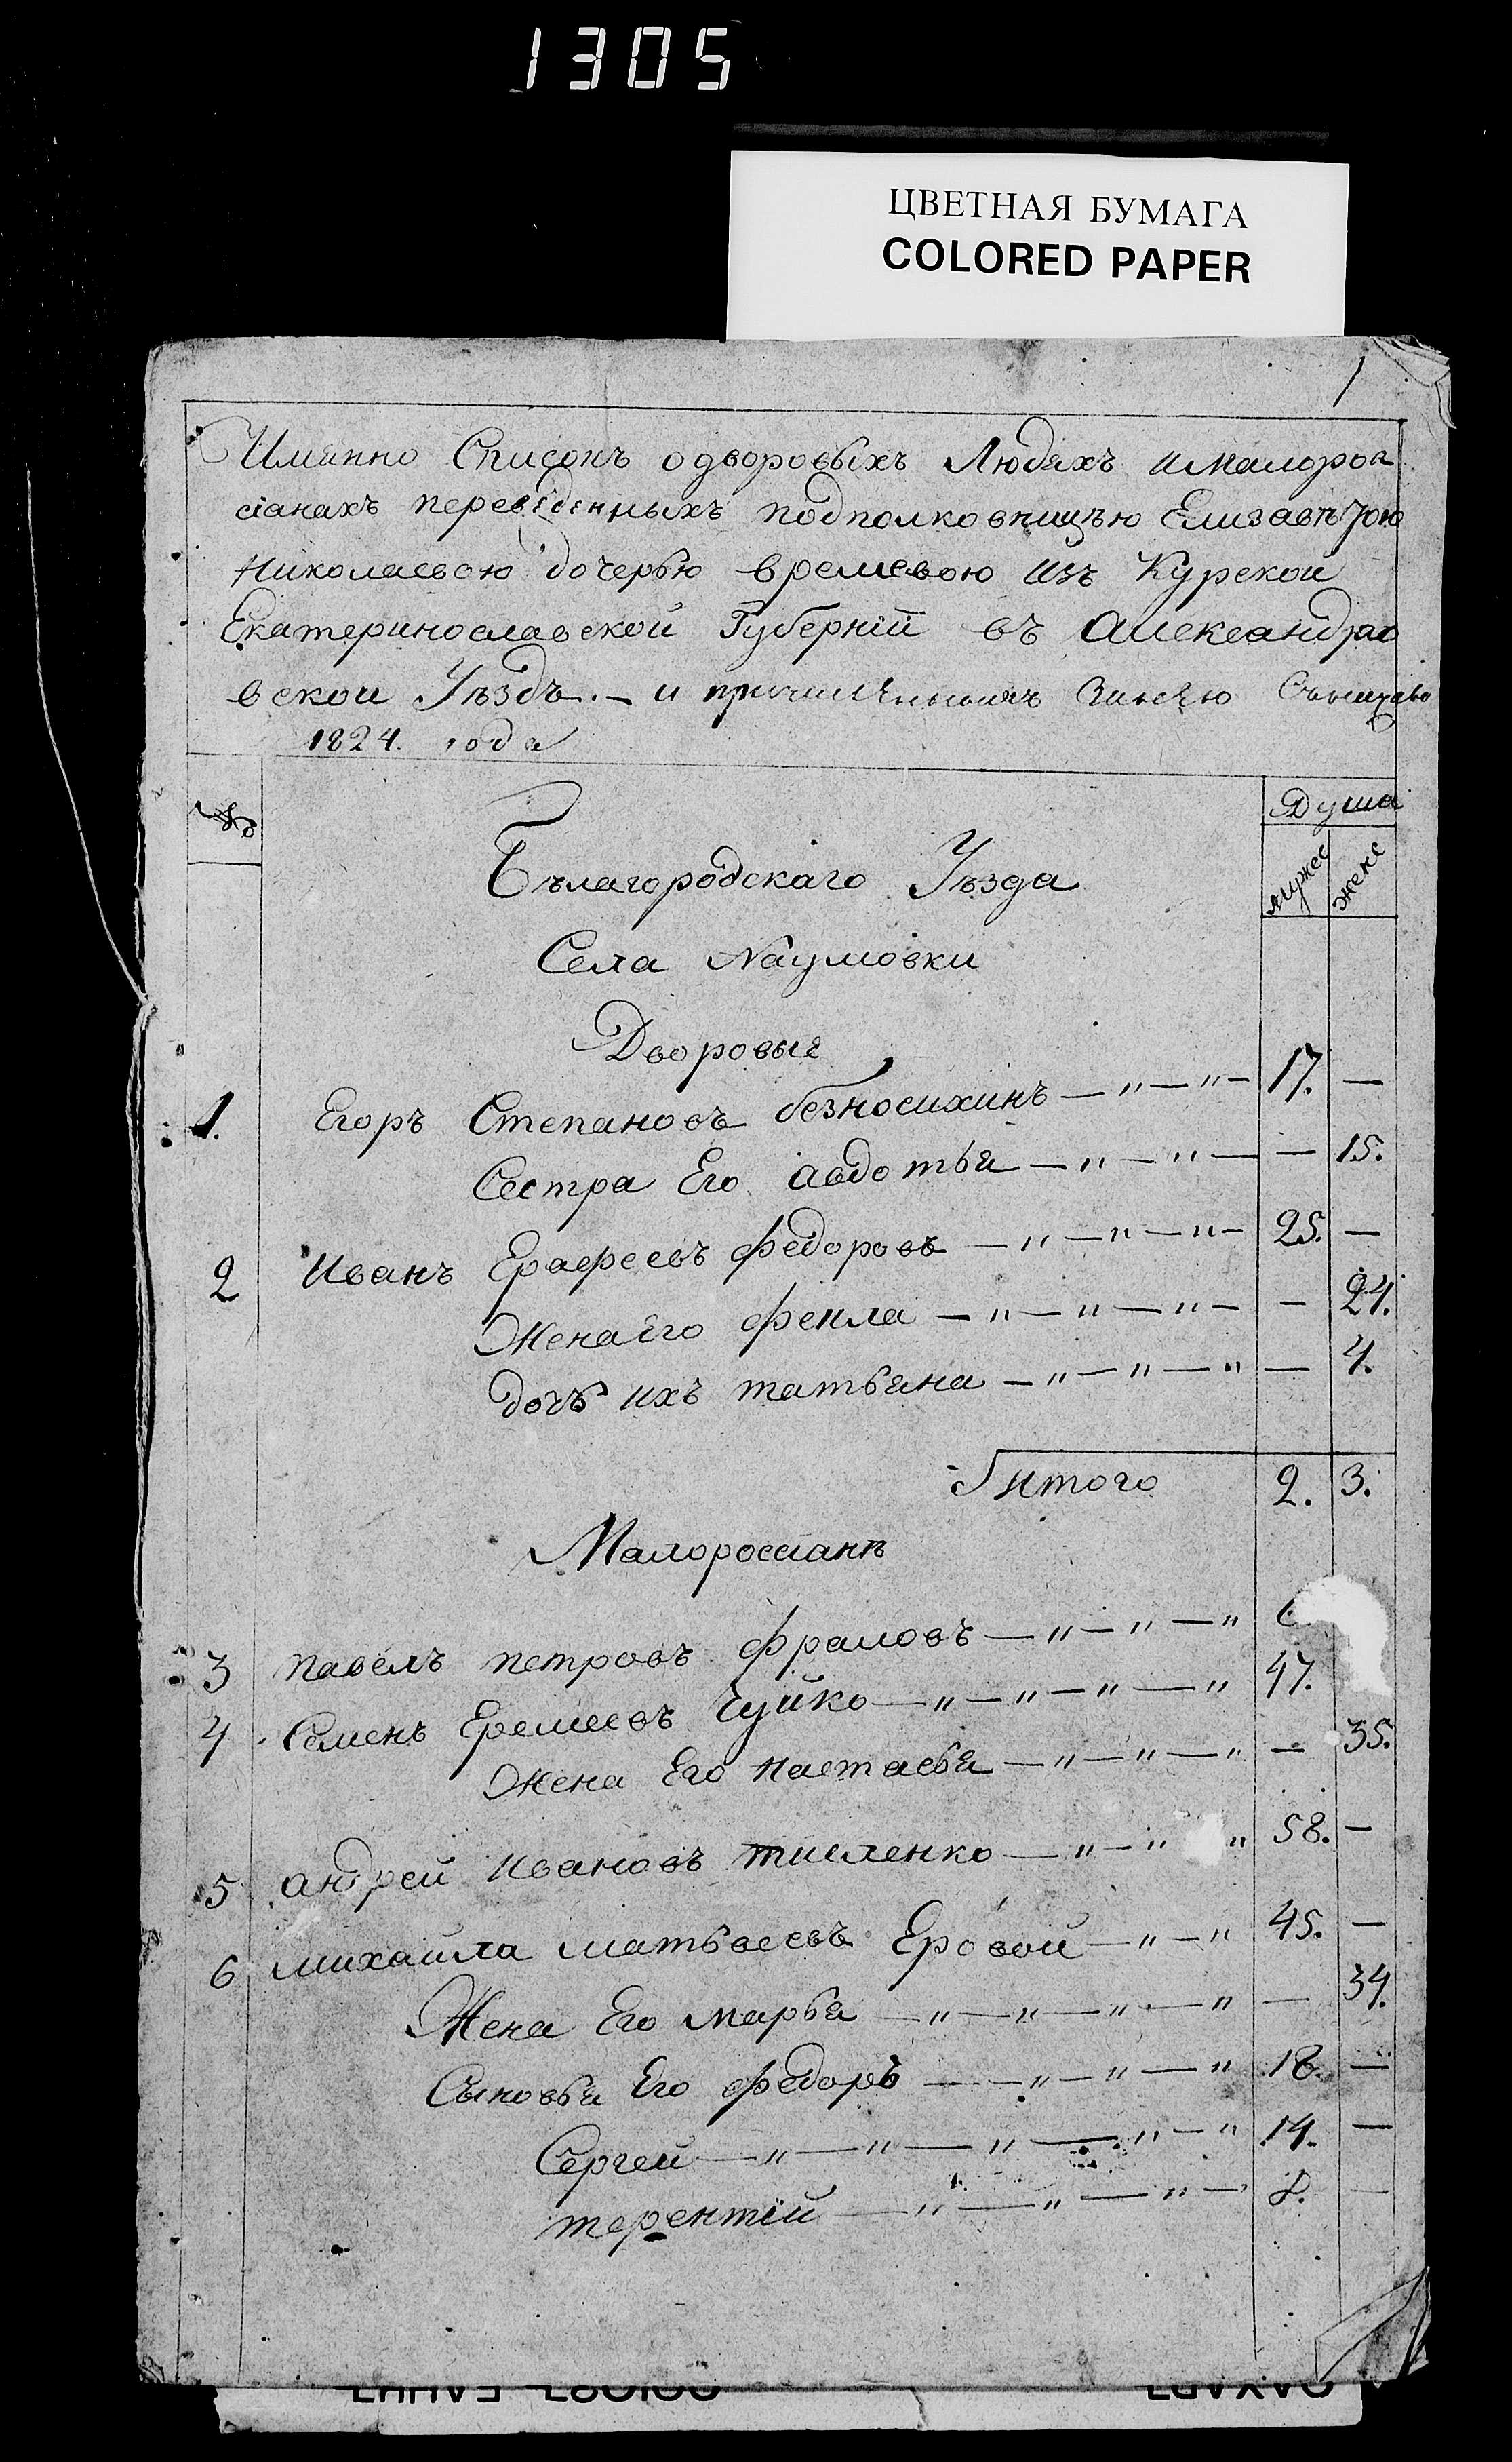 1305
ЦВЕТНАЯ БУМАГА
COLORED PAPER
1
Имянно Списокъ о дворовыхъ Людяхъ и малоросъ
сіанахъ переведенныхъ подполковницею Елизаветою
Николаевою дочерью времевою изъ Курской
Екатеринославской Губерніи въ Александро
вской Уѣздъ. — и причисленныхъ
1824. года
№ Душа
мужес женс
Бѣлагородскаго Уѣзда
Села Наумовки
Дворовые
1. Егоръ Степановъ безносихинъ — " — " — 17. —
Сестра Его авдотья — " — " — — 15.
2 Иванъ Ерофеевъ федоровъ — " — " — " — 25. —
Жена Его фекла — " — " — " — — 24.
дочь ихъ татьяна — " — " — " — 4.
итого 2. 3.
Малороссіанѣ
3 павелъ петровъ фрамовъ — " — " — "
4 Семенъ Еремеевъ Чуйко — " — " — " — " 47.
Жена Его настасья — " — " — " — 35.
5 андрей Ивановъ тисленко — " — " " 58. —
6 михайла матьвеевъ Еровой — " — " 45. —
Жена Его марья — " — " — " — " — 34.
Сыновья Его федоръ — — " — " — " 18. —
Сергей — " — " — " — " — " 14. —
терентій — " — " — " — 8. —